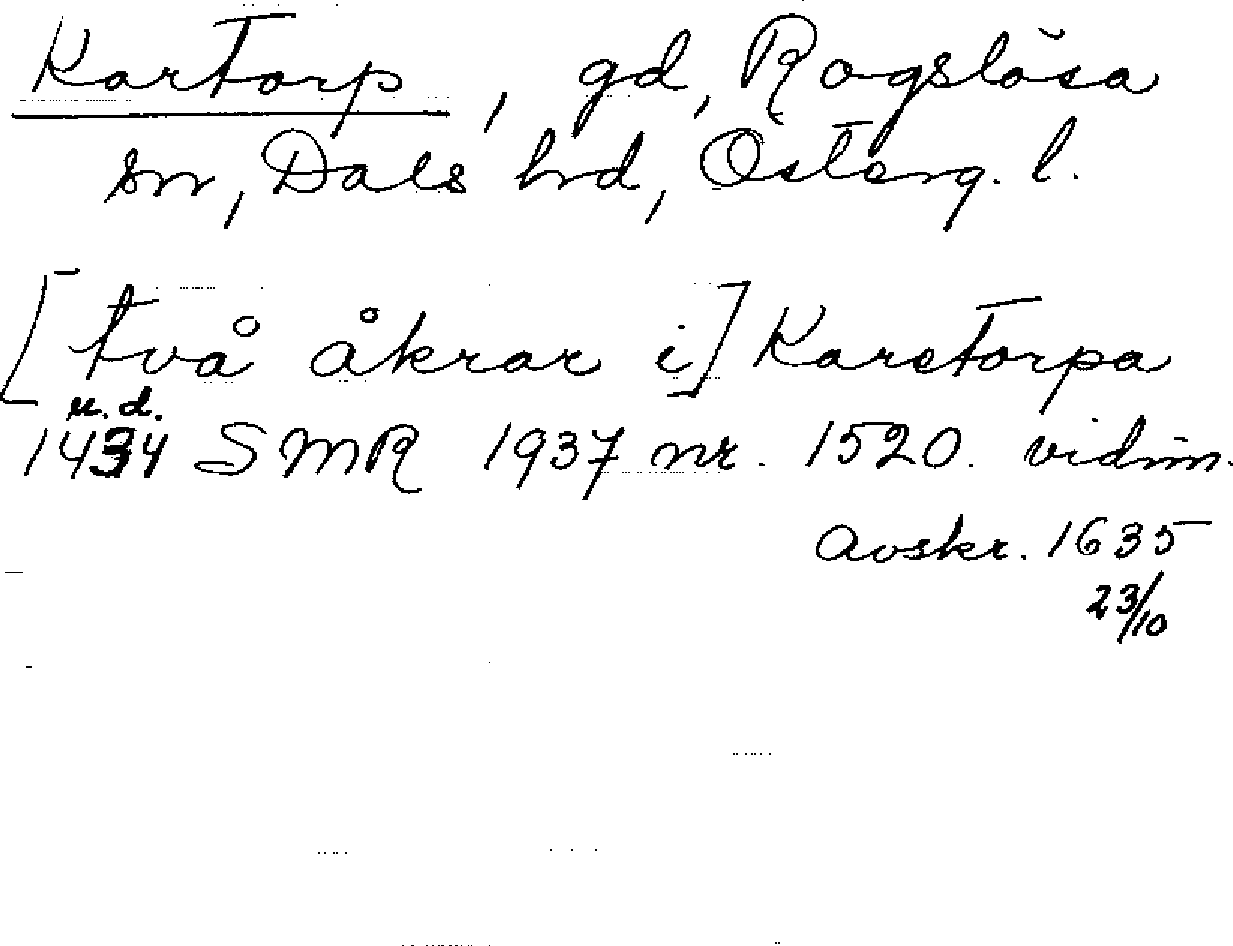 Kartorp, gd, Rogslösa
sn, Dals hrd, Österg. l.
[två åkrar i] Karetorpa
u.d.
1434 SMR 1937 nr. 1520. vidim.
Avskr. 1635
23/10